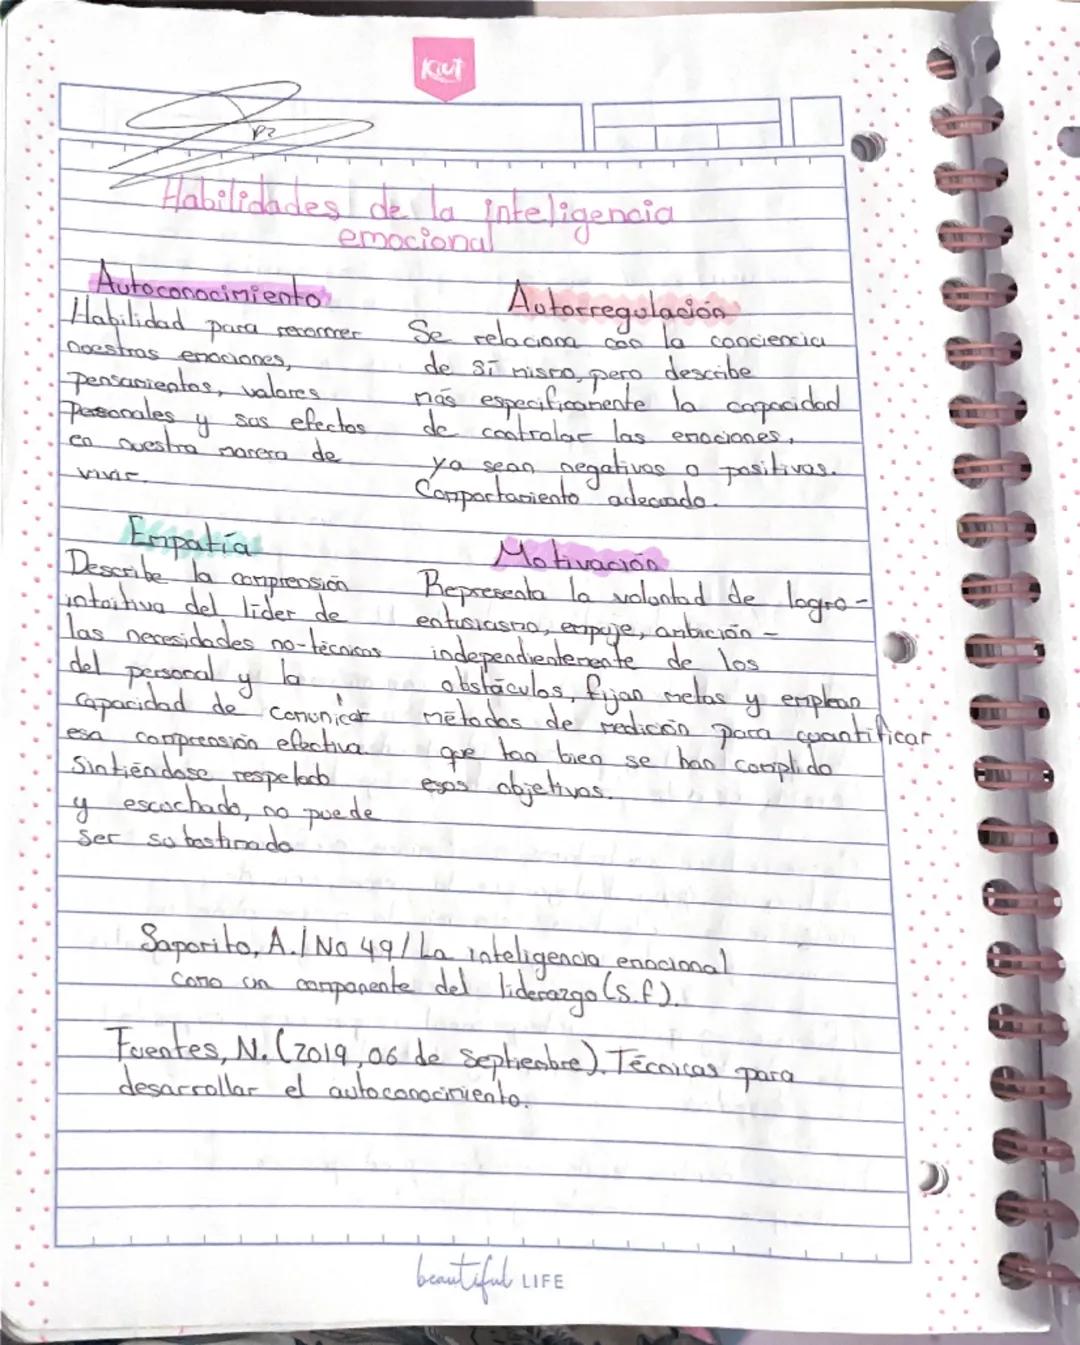 KIUT
Habilidades de la inteligencia
emocional
Autoconocimiento
Habilidad para reconocer
nuestras emociones,
pensamientos, valores
Personales y sus efectos
en nuestra manera de
vivir.
Autorregulación
Se relaciona con la conciencia
de sí mismo, pero describe
más especificamente la capacidad
de controlar las emociones,
ya sean negativas o positivas.
Comportamiento adecuado.
Empatía
Describe la comprensión
intuitiva del líder de
las necesidades no-técnicas
del personal y la
capacidad de comunicar
esa comprensión efectiva.
Sintiéndose respetado
y escuchado, no puede
ser
Motivación
Representa la voluntad de logro-
entusiasmo, empuje, ambición -
independientemente de los
obstáculos, fijan metas y emplean
métodos de medición para cuantificar
que tan bien se han complido
esos objetivos.
Saporito, A. / No 49 / La inteligencia emocional
como un componente del liderazgo (s.f).
Fuentes, N. (2019, 06 de Septiembre). Técnicas para
desarrollar el autoconocimiento.
beautiful LIFE